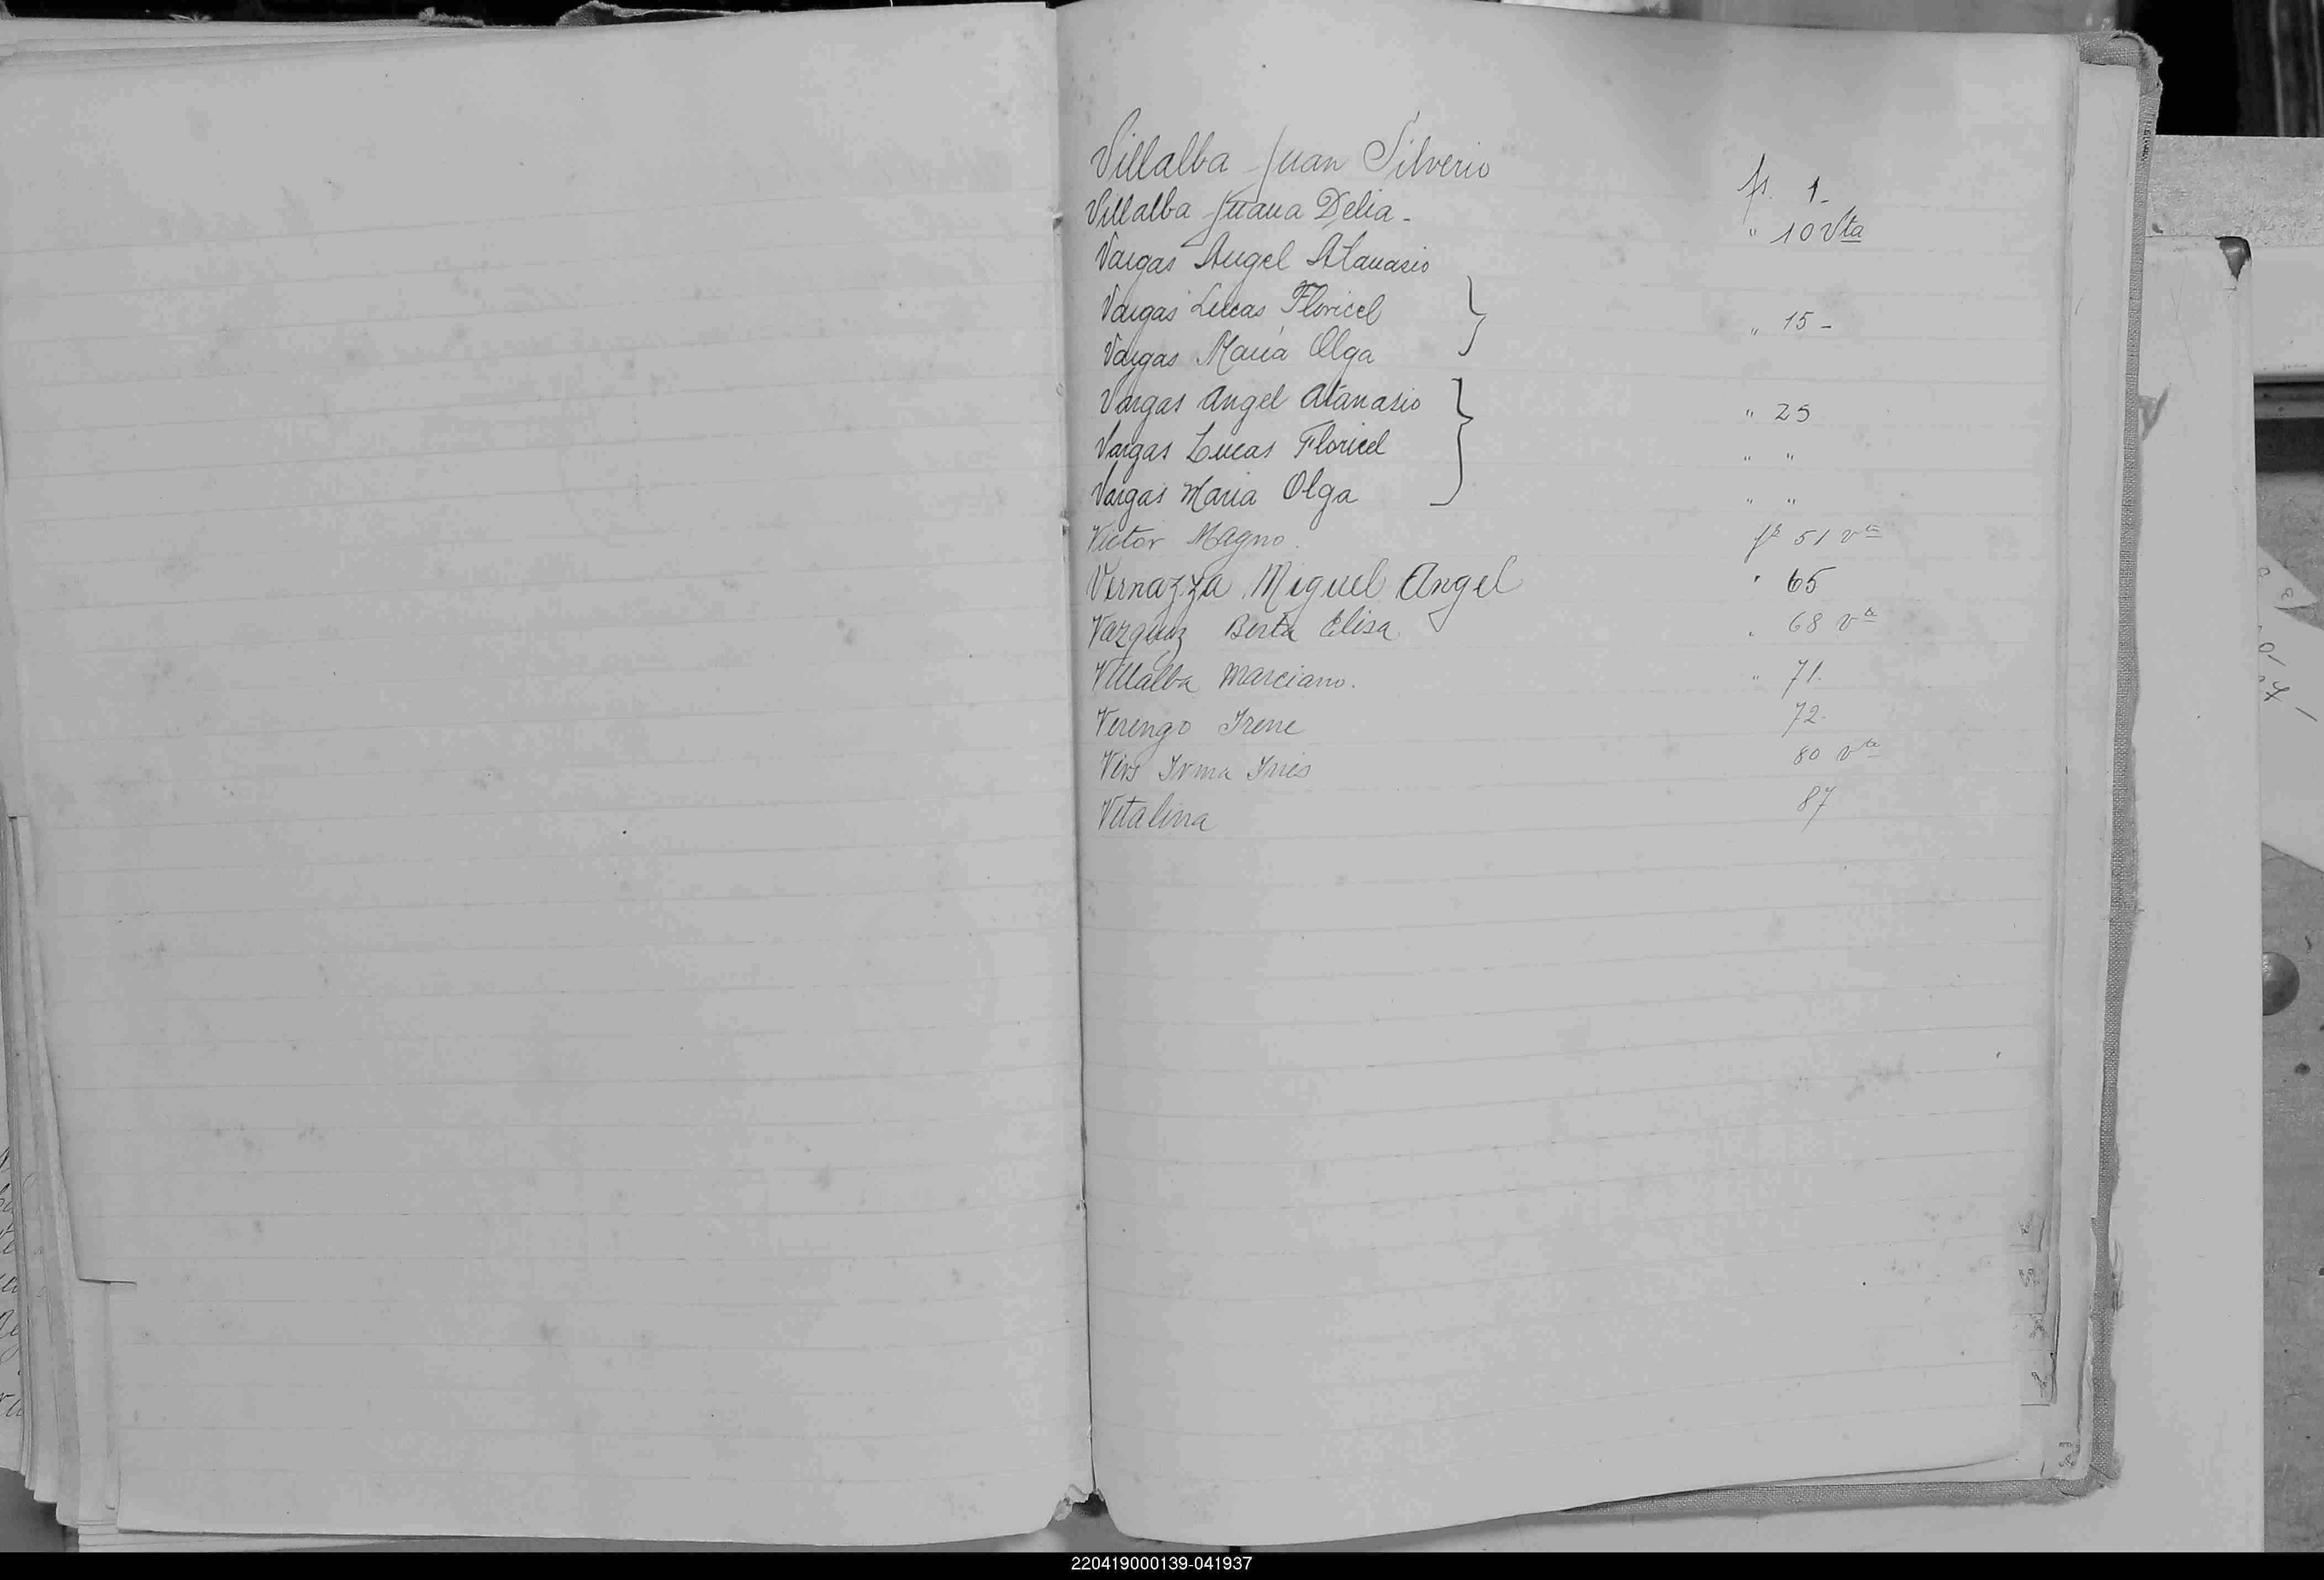 Villalba Juan Silverio fs. 1-
Villalba Juana Delia - " 10 Vta
Vargas Angel Atanasio
Vargas Lucas Floricel
Vargas María Olga } " 15 -
Vargas Angel Atanasio " 25
Vargas Lucas Floricel " "
Vargas Maria Olga } " "
Victor Magno. fs 51 vta
Vernazza Miguel Angel " 65
Vazquez Berta Elisa " 68 vta
Villalba Marciano. " 71.
Verengo Irene 72.
Irma Inés 80 vta
Vitalina 87
220419000139-041937